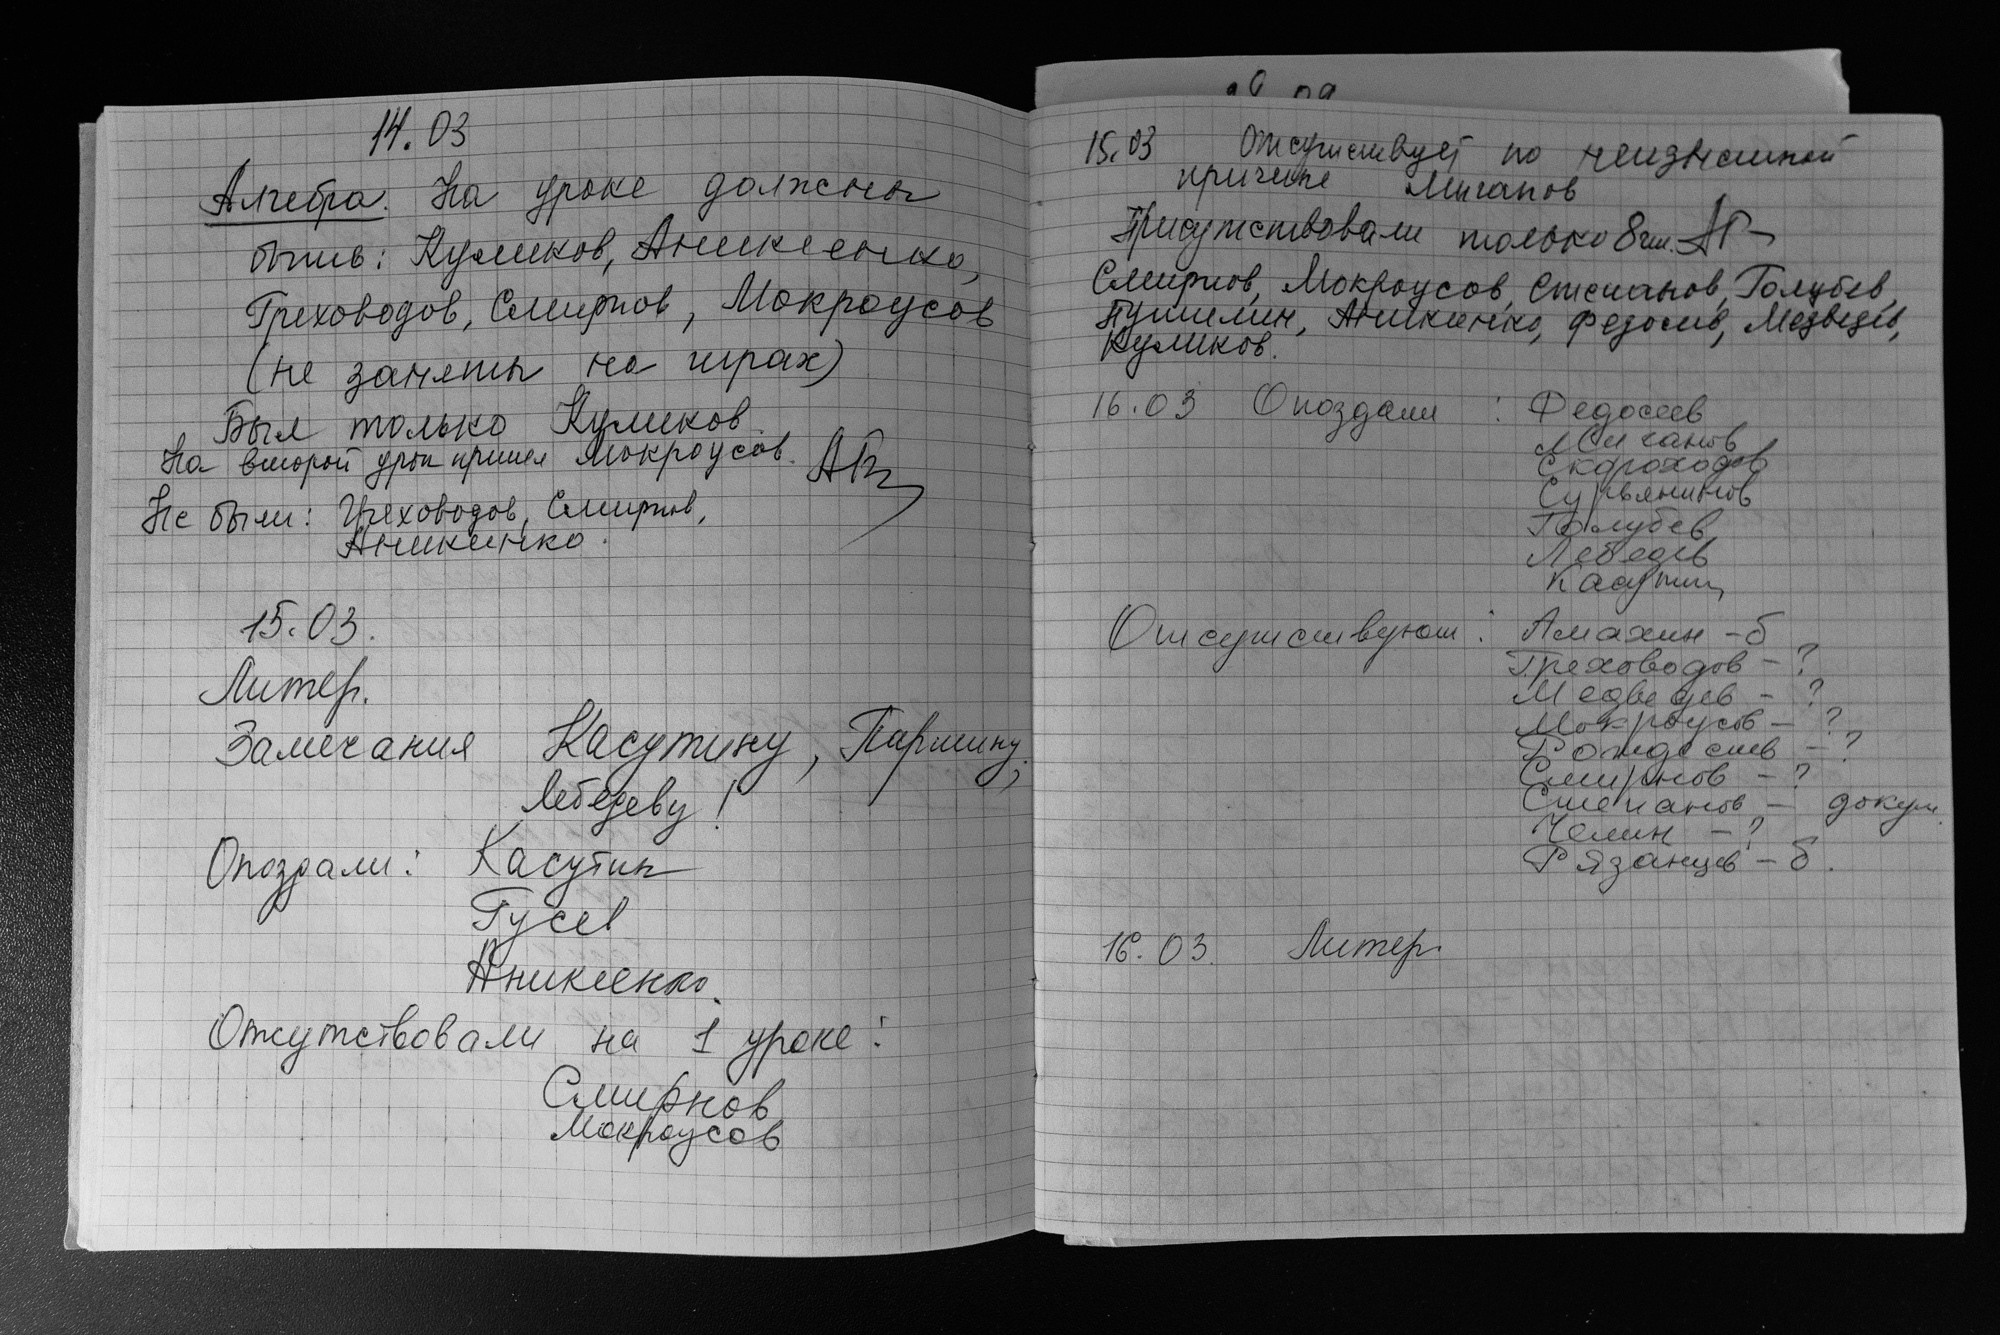 14.03
Алгебра. На уроке должны
быть: Куликов, Аникеенко,
Греховодов, Смирнов, Мокроусов
(не заняты на играх)
Был только Куликов.
На второй урок пришел Мокроусов.
Не были: Греховодов, Смирнов,
Аникеенко.
15.03.
Литер.
Замечания Касутину, Паршину,
Лебедеву!
Опоздали: Касутин
Гусев
Аникеенко.
Отсутствовали на 1 уроке:
Смирнов
Мокроусов
15.03 Отсутствует по неизвестной
причине Мысапов
Присутствовали только 8 чел.
Смирнов, Мокроусов, Степанов, Голубев,
Аникеенко, Федосеев, Медведев,
Куликов.
16.03 Опоздали: Федосеев
Скороходов
Голубев
Лебедев
Касутин
Отсутствуют: Амахин - б
Греховодов - ?
Медведев - ?
Мокроусов - ?
- ?
Смирнов - ?
Степанов - докум.
Челин - ?
Рязанцев - б.
16.03. Литер.